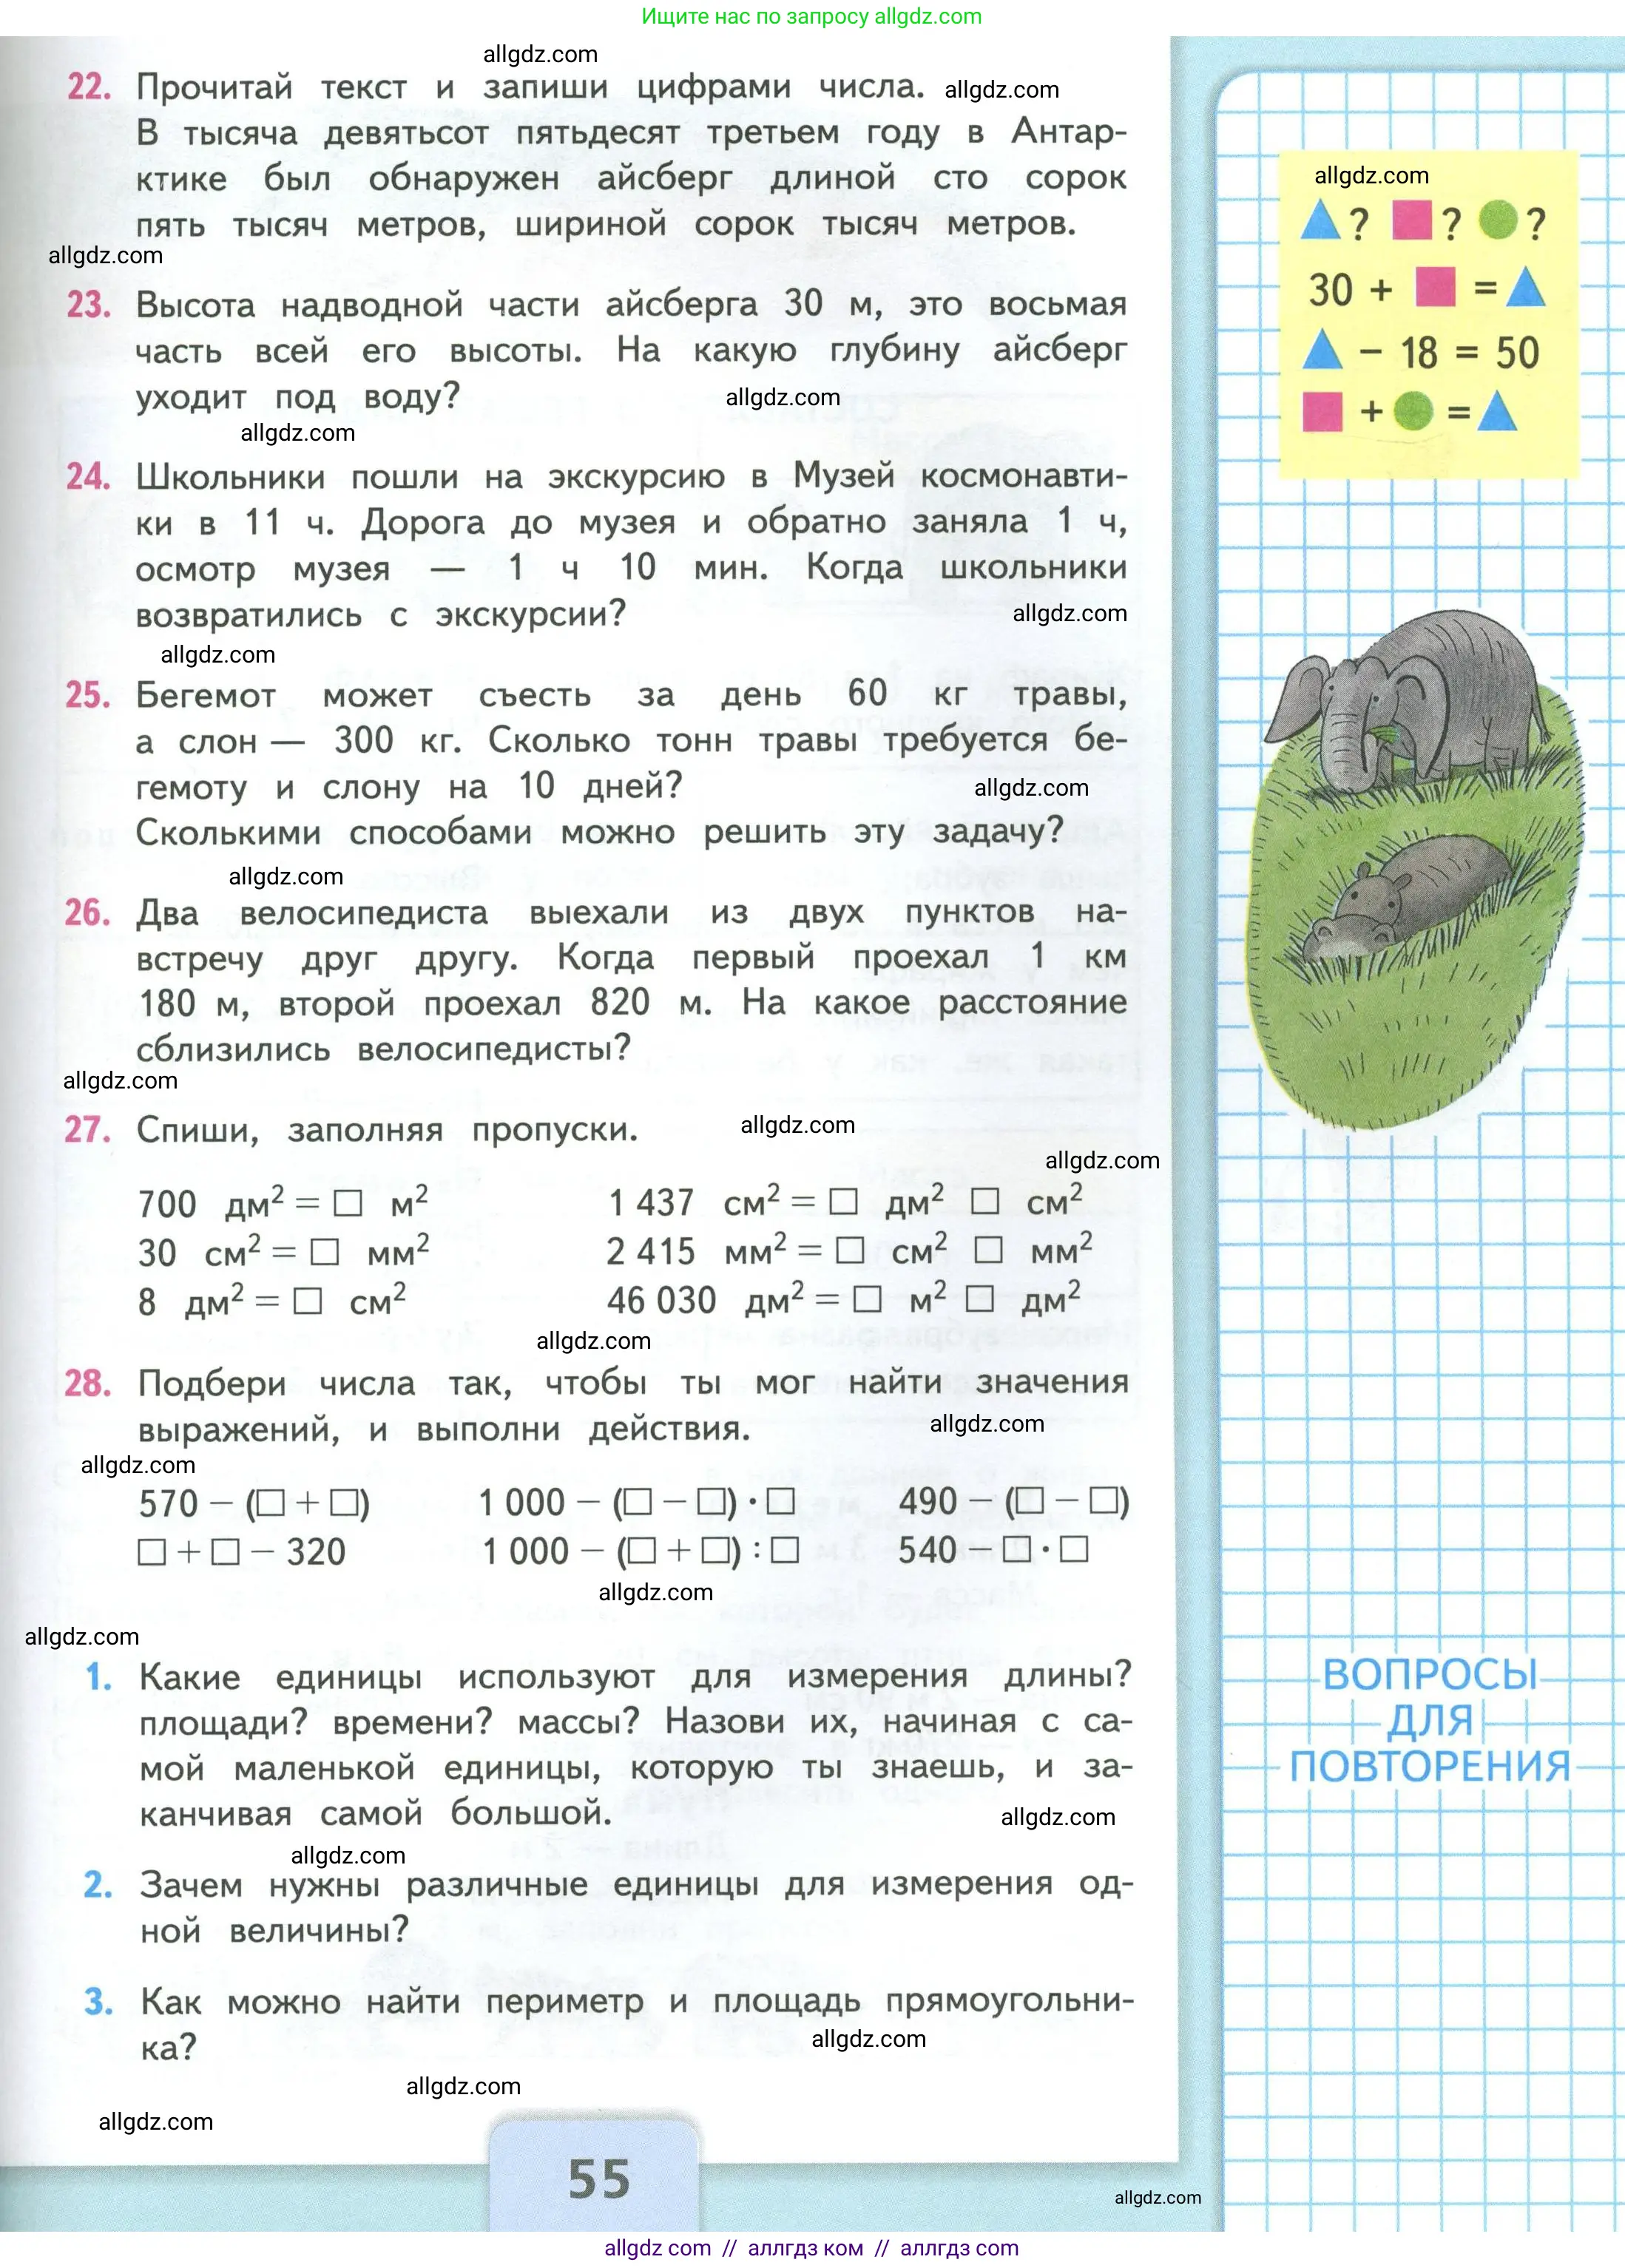 Ищите нас по запросу allgdz.com
allgdz.com
22. Прочитай текст и запиши цифрами числа. allgdz.com
В тысяча девятьсот пятьдесят третьем году в Антар-
ктике был обнаружен айсберг длиной сто сорок
пять тысяч метров, шириной сорок тысяч метров.
allgdz.com
23. Высота надводной части айсберга 30 м, это восьмая
часть всей его высоты. На какую глубину айсберг
уходит под воду? allgdz.com
allgdz.com
24. Школьники пошли на экскурсию в Музей космонавти-
ки в 11 ч. Дорога до музея и обратно заняла 1 ч,
осмотр музея — 1 ч 10 мин. Когда школьники
возвратились с экскурсии? allgdz.com
allgdz.com
25. Бегемот может съесть за день 60 кг травы,
а слон — 300 кг. Сколько тонн травы требуется бе-
гемоту и слону на 10 дней? allgdz.com
Сколькими способами можно решить эту задачу?
allgdz.com
26. Два велосипедиста выехали из двух пунктов на-
встречу друг другу. Когда первый проехал 1 км
180 м, второй проехал 820 м. На какое расстояние
сблизились велосипедисты?
allgdz.com
27. Спиши, заполняя пропуски. allgdz.com
allgdz.com
700 дм² = □ м² 1 437 см² = □ дм² □ см²
30 см² = □ мм² 2 415 мм² = □ см² □ мм²
8 дм² = □ см² 46 030 дм² = □ м² □ дм²
allgdz.com
28. Подбери числа так, чтобы ты мог найти значения
выражений, и выполни действия. allgdz.com
allgdz.com
570 − (□ + □) 1 000 − (□ − □) · □ 490 − (□ − □)
□ + □ − 320 1 000 − (□ + □) : □ 540 − □ · □
allgdz.com
allgdz.com
1. Какие единицы используют для измерения длины?
площади? времени? массы? Назови их, начиная с са-
мой маленькой единицы, которую ты знаешь, и за-
канчивая самой большой. allgdz.com
allgdz.com
2. Зачем нужны различные единицы для измерения од-
ной величины?
3. Как можно найти периметр и площадь прямоугольни-
ка? allgdz.com
allgdz.com
allgdz.com
55
allgdz.com
▲? ■? ●?
30 + ■ = ▲
▲ − 18 = 50
■ + ● = ▲
ВОПРОСЫ
ДЛЯ
ПОВТОРЕНИЯ
allgdz.com
allgdz.com // аллгдз ком // аллгдз com